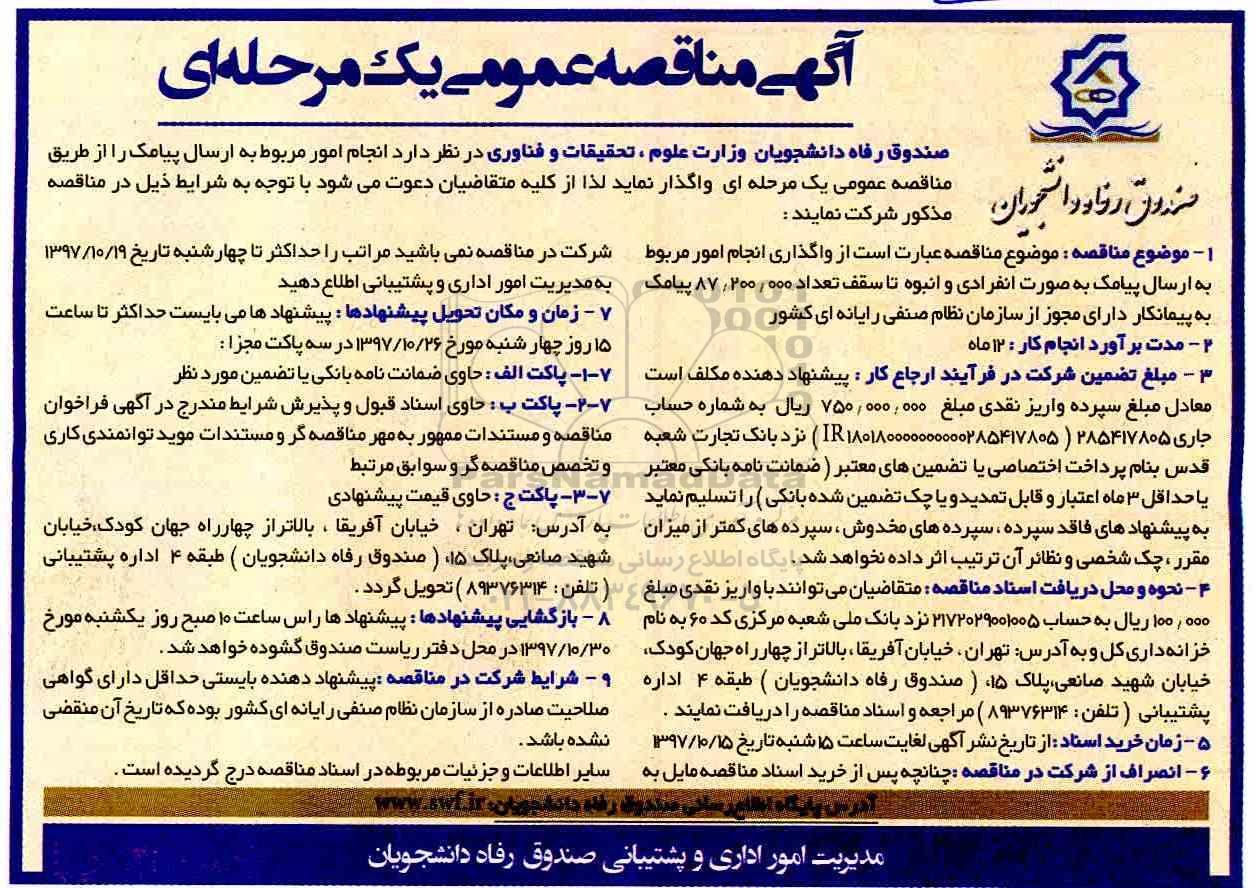 آگهی مناقصه عمومی یک مرحله‌ای
صندوق رفاه دانشجویان
صندوق رفاه دانشجویان وزارت علوم ، تحقیقات و فناوری در نظر دارد انجام امور مربوط به ارسال پیامک را از طریق
مناقصه عمومی یک مرحله ای واگذار نماید لذا از کلیه متقاضیان دعوت می شود با توجه به شرایط ذیل در مناقصه
مذکور شرکت نمایند :
۱- موضوع مناقصه : موضوع مناقصه عبارت است از واگذاری انجام امور مربوط
به ارسال پیامک به صورت انفرادی و انبوه تا سقف تعداد ۸۷,۲۰۰,۰۰۰ پیامک
به پیمانکار دارای مجوز از سازمان نظام صنفی رایانه ای کشور
۲- مدت برآورد انجام کار : ۱۲ ماه
۳- مبلغ تضمین شرکت در فرآیند ارجاع کار : پیشنهاد دهنده مکلف است
معادل مبلغ سپرده واریز نقدی مبلغ ۷۵۰,۰۰۰,۰۰۰ ریال به شماره حساب
جاری ۲۸۵۴۱۷۸۰۵ ( IR۱۸۰۱۸۰۰۰۰۰۰۰۰۰۰۰۲۸۵۴۱۷۸۰۵ ) نزد بانک تجارت شعبه
قدس بنام پرداخت اختصاصی یا تضمین های معتبر ( ضمانت نامه بانکی معتبر
یا حداقل ۳ ماه اعتبار و قابل تمدید و یا چک تضمین شده بانکی ) را تسلیم نماید
به پیشنهاد های فاقد سپرده ، سپرده های مخدوش ، سپرده های کمتر از میزان
مقرر ، چک شخصی و نظائر آن ترتیب اثر داده نخواهد شد .
۴- نحوه و محل دریافت اسناد مناقصه : متقاضیان می توانند با واریز نقدی مبلغ
۱۰۰,۰۰۰ ریال به حساب ۲۱۷۲۰۲۹۰۰۱۰۰۵ نزد بانک ملی شعبه مرکزی کد ۶۰ به نام
خزانه داری کل و به آدرس: تهران ، خیابان آفریقا ، بالاتر از چهارراه جهان کودک،
خیابان شهید صانعی،پلاک ۱۵، ( صندوق رفاه دانشجویان ) طبقه ۴ اداره
پشتیبانی ( تلفن : ۸۹۳۷۶۳۱۴ ) مراجعه و اسناد مناقصه را دریافت نمایند .
۵- زمان خرید اسناد : از تاریخ نشر آگهی لغایت ساعت ۱۵ شنبه تاریخ ۱۳۹۷/۱۰/۱۵
۶- انصراف از شرکت در مناقصه : چنانچه پس از خرید اسناد مناقصه مایل به
شرکت در مناقصه نمی باشید مراتب را حداکثر تا چهارشنبه تاریخ ۱۳۹۷/۱۰/۱۹
به مدیریت امور اداری و پشتیبانی اطلاع دهید
۷- زمان و مکان تحویل پیشنهادها : پیشنهاد ها می بایست حداکثر تا ساعت
۱۵ روز چهار شنبه مورخ ۱۳۹۷/۱۰/۲۶ در سه پاکت مجزا :
۷-۱- پاکت الف : حاوی ضمانت نامه بانکی یا تضمین مورد نظر
۷-۲- پاکت ب : حاوی اسناد قبول و پذیرش شرایط مندرج در آگهی فراخوان
مناقصه و مستندات ممهور به مهر مناقصه گر و مستندات موید توانمندی کاری
و تخصص مناقصه گر و سوابق مرتبط
۷-۳- پاکت ج : حاوی قیمت پیشنهادی
به آدرس: تهران ، خیابان آفریقا ، بالاتر از چهارراه جهان کودک،خیابان
شهید صانعی،پلاک ۱۵، ( صندوق رفاه دانشجویان ) طبقه ۴ اداره پشتیبانی
( تلفن : ۸۹۳۷۶۳۱۴ ) تحویل گردد .
۸- بازگشایی پیشنهادها : پیشنهاد ها راس ساعت ۱۰ صبح روز یکشنبه مورخ
۱۳۹۷/۱۰/۳۰ در محل دفتر ریاست صندوق گشوده خواهد شد .
۹- شرایط شرکت در مناقصه : پیشنهاد دهنده بایستی حداقل دارای گواهی
صلاحیت صادره از سازمان نظام صنفی رایانه ای کشور بوده که تاریخ آن منقضی
نشده باشد .
سایر اطلاعات و جزئیات مربوطه در اسناد مناقصه درج گردیده است .
آدرس پایگاه اطلاع رسانی صندوق رفاه دانشجویان: www.swf.ir
مدیریت امور اداری و پشتیبانی صندوق رفاه دانشجویان
ParsNamadData
۰۲۱-۸۸۳۴۹۶۷۰-۵